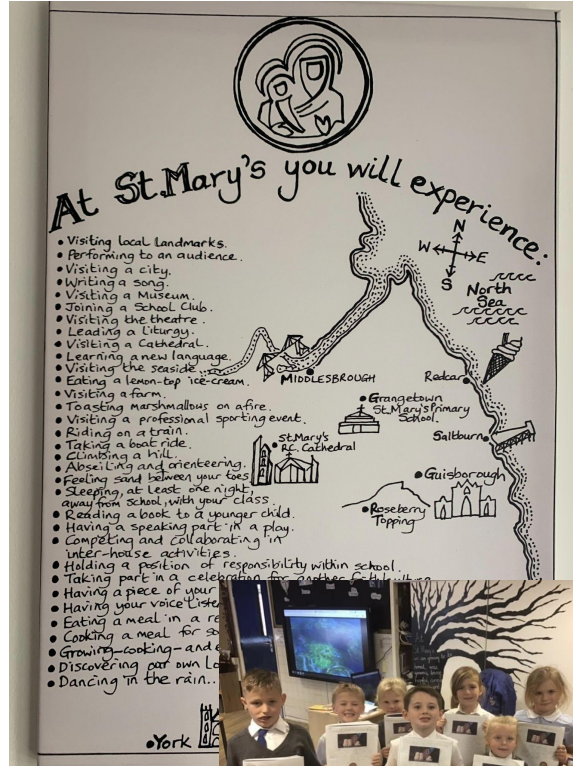 At St. Mary's you will experience:
• Visiting local landmarks.
• Performing to an audience.
• Visiting a city.
• Writing a song.
• Visiting a Museum.
• Joining a School Club.
• Visiting the theatre.
• Leading a Liturgy.
• Visiting a Cathedral.
• Learning a new language.
• Visiting the seaside
• Eating a lemon-top ice-cream.
• Visiting a farm.
• Toasting marshmallows on a fire.
• Visiting a professional sporting event.
• Riding on a train.
• Taking a boat ride.
• Climbing a hill.
• Abseiling and orienteering.
• Feeling sand between your toes
• Sleeping, at least one night,
away from school, with your class.
• Reading a book to a younger child.
• Having a speaking part in a play.
• Competing and collaborating in
inter-house activities.
• Holding a position of responsibility within school.
• Taking part in a celebration for another
• Having a piece of your
• Having your voice
• Eating a meal in a
• Cooking a meal for
• Growing-cooking-and
• Discovering our own
• Dancing in the rain..
N
W E
S
North
Sea
MIDDLESBROUGH
Redcar
Grangetown
St.Mary's Primary
School.
Saltburn
St.Mary's
R.C. Cathedral
Guisborough
Roseberry
Topping
York